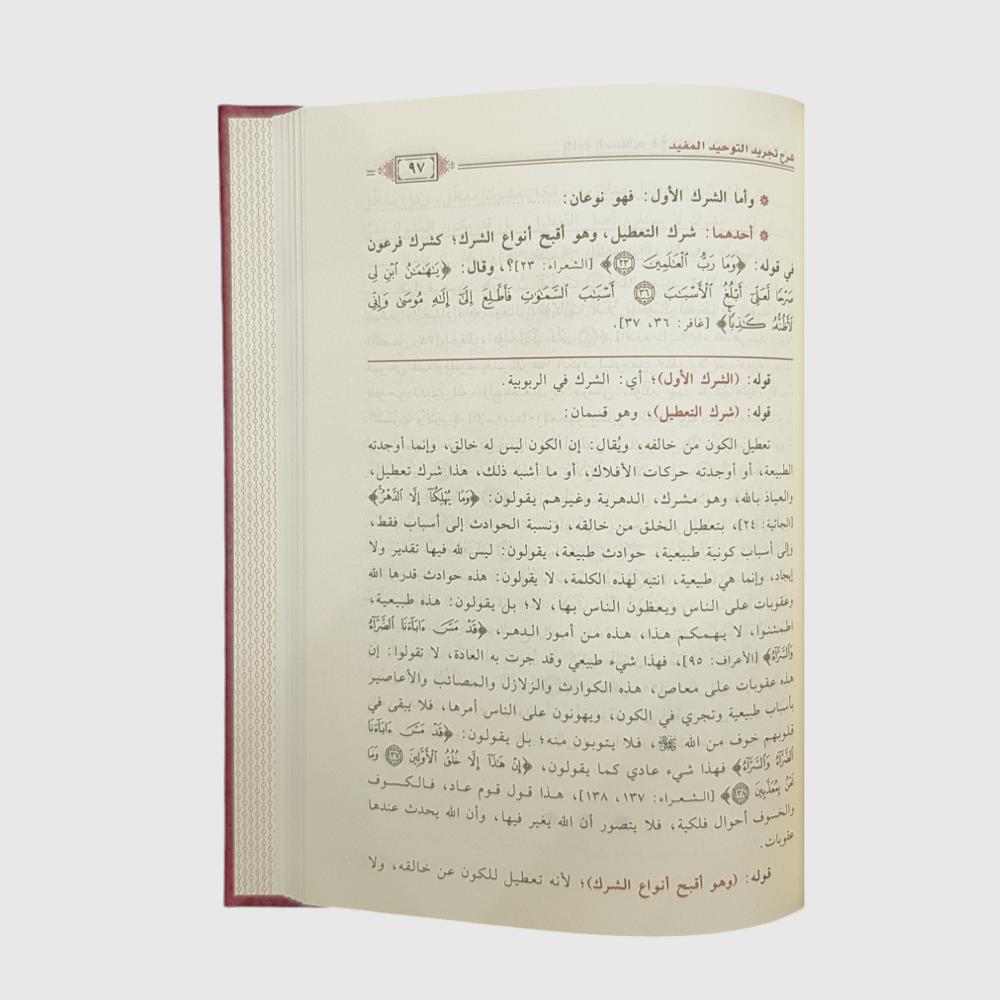 شرح تجريد التوحيد المفيد
٩٧
* وأما الشرك الأول: فهو نوعان:
* أحدهما: شرك التعطيل، وهو أقبح أنواع الشرك؛ كشرك فرعون
في قوله: ﴿وَمَا رَبُّ ٱلْعَٰلَمِينَ ٢٣﴾ [الشعراء: ٢٣]؟، وقال: ﴿يَٰهَٰمَٰنُ ٱبْنِ لِى
صَرْحًا لَّعَلِّىٓ أَبْلُغُ ٱلْأَسْبَٰبَ ٣٦ أَسْبَٰبَ ٱلسَّمَٰوَٰتِ فَأَطَّلِعَ إِلَىٰٓ إِلَٰهِ مُوسَىٰ وَإِنِّى
لَأَظُنُّهُۥ كَٰذِبًا﴾ [غافر: ٣٦، ٣٧].
قوله: (الشرك الأول)؛ أي: الشرك في الربوبية.
قوله: (شرك التعطيل)، وهو قسمان:
تعطيل الكون من خالقه، ويُقال: إن الكون ليس له خالق، وإنما أوجدته
الطبيعة، أو أوجدته حركات الأفلاك، أو ما أشبه ذلك، هذا شرك تعطيل،
والعياذ بالله، وهو مشرك، الدهرية وغيرهم يقولون: ﴿وَمَا يُهْلِكُنَآ إِلَّا ٱلدَّهْرُ﴾
[الجاثية: ٢٤]، بتعطيل الخلق من خالقه، ونسبة الحوادث إلى أسباب فقط،
وإلى أسباب كونية طبيعية، حوادث طبيعة، يقولون: ليس لله فيها تقدير ولا
إيجاد، وإنما هي طبيعية، انتبه لهذه الكلمة، لا يقولون: هذه حوادث قدرها الله
وعقوبات على الناس ويعظون الناس بها، لا؛ بل يقولون: هذه طبيعية،
اطمئنوا، لا يهمكم هذا، هذه من أمور الدهر، ﴿قَدْ مَسَّ ءَابَآءَنَا ٱلضَّرَّآءُ
وَٱلسَّرَّآءُ﴾ [الأعراف: ٩٥]، فهذا شيء طبيعي وقد جرت به العادة، لا تقولوا: إن
هذه عقوبات على معاصٍ، هذه الكوارث والزلازل والمصائب والأعاصير
بأسباب طبيعية وتجري في الكون، ويهونون على الناس أمرها، فلا يبقى في
قلوبهم خوف من الله ﷻ، فلا يتوبون منه؛ بل يقولون: ﴿قَدْ مَسَّ ءَابَآءَنَا
ٱلضَّرَّآءُ وَٱلسَّرَّآءُ﴾ فهذا شيء عادي كما يقولون، ﴿إِنْ هَٰذَآ إِلَّا خُلُقُ ٱلْأَوَّلِينَ ١٣٧ وَمَا
نَحْنُ بِمُعَذَّبِينَ ١٣٨﴾ [الشعراء: ١٣٧، ١٣٨]، هذا قول قوم عاد، فالكسوف
والخسوف أحوال فلكية، فلا يتصور أن الله يغير فيها، وأن الله يحدث عندها
عقوبات.
قوله: (وهو أقبح أنواع الشرك)؛ لأنه تعطيل للكون عن خالقه، ولا